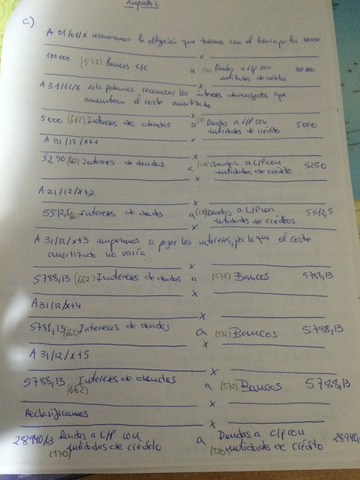 c)
A 01/01/X reconocemos la obligación que tenemos con el banco por los 100000
100.000 (572) Bancos c/c a Deudas a L/P con entidades de crédito 100.000
A 31/12/X solo podemos reconocer los intereses devengados que aumentan el coste amortizado
x
5000 (662) Intereses de deudas a Deudas a L/P con entidades de crédito 5000
x
A 31/12/X+1
x
5250 (662) Intereses de deudas a Deudas a L/P con entidades de crédito 5250
A 31/12/X+2
x
5512,5 Intereses de deudas a Deudas a L/P con entidades de créditos 5512,5
x
A 31/12/X+3 empezamos a pagar los intereses, por lo que el coste amortizado no varía
x
5788,13 (662) Intereses de deudas a (572) Bancos 5788,13
x
A 31/12/X+4
x
5788,13 (662) Intereses de deudas a (572) Bancos 5788,13
x
A 31/12/X+5
x
5788,13 (662) Intereses de deudas a (572) Bancos 5788,13
x
Reclasificamos
x
Deudas a L/P con entidades de crédito (170) a Deudas a C/P con entidades de crédito (520)